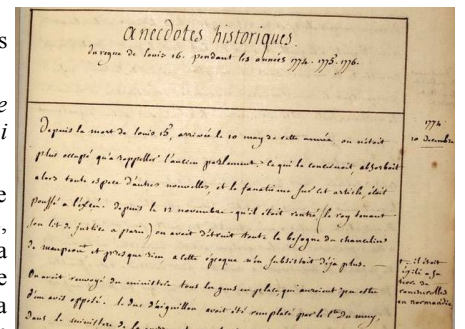 anecdotes historiques.
du regne de louis 16. pendant les années 1774. 1775. 1776.
1774.
10 decembre
Depuis la mort de louis 15, arrivée le 10 may de cette année, on n'étoit
plus occupé qu'a rappeller l'ancien parlement. ce qui le concernoit, absorboit
alors toute espece d'autres nouvelles, et le fanatisme sur cet article, étoit
poussé a l'excès. depuis le 12 novembre qu'il étoit rentré (le roy tenant
son lit de justice a paris) on avoit détruit toute la besogne du chancelier
de maupeou et presque rien a cette époque n'en subsistoit déja plus.
On avoit renvoyé du ministere tous les gens en place qui auroient pu etre
d'un avis opposé. le duc d'aiguillon avoit été remplacé par le du muy,
dans le ministere de la
il étoit
exilé a sa
terre de
en normandie
s
e
i
e
,
a
e
a